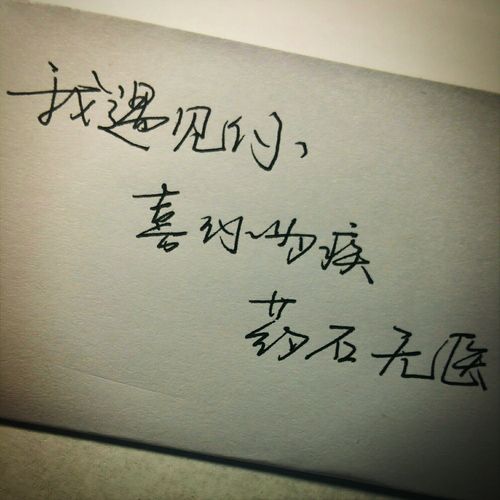 我遇见你、
喜 疾
药石无医